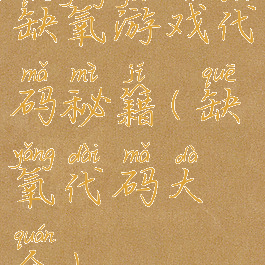 缺氧游戏代
mǎ mì jí quē
码秘籍(缺
yǎng dài mǎ dà
氧代码大
quán
全)